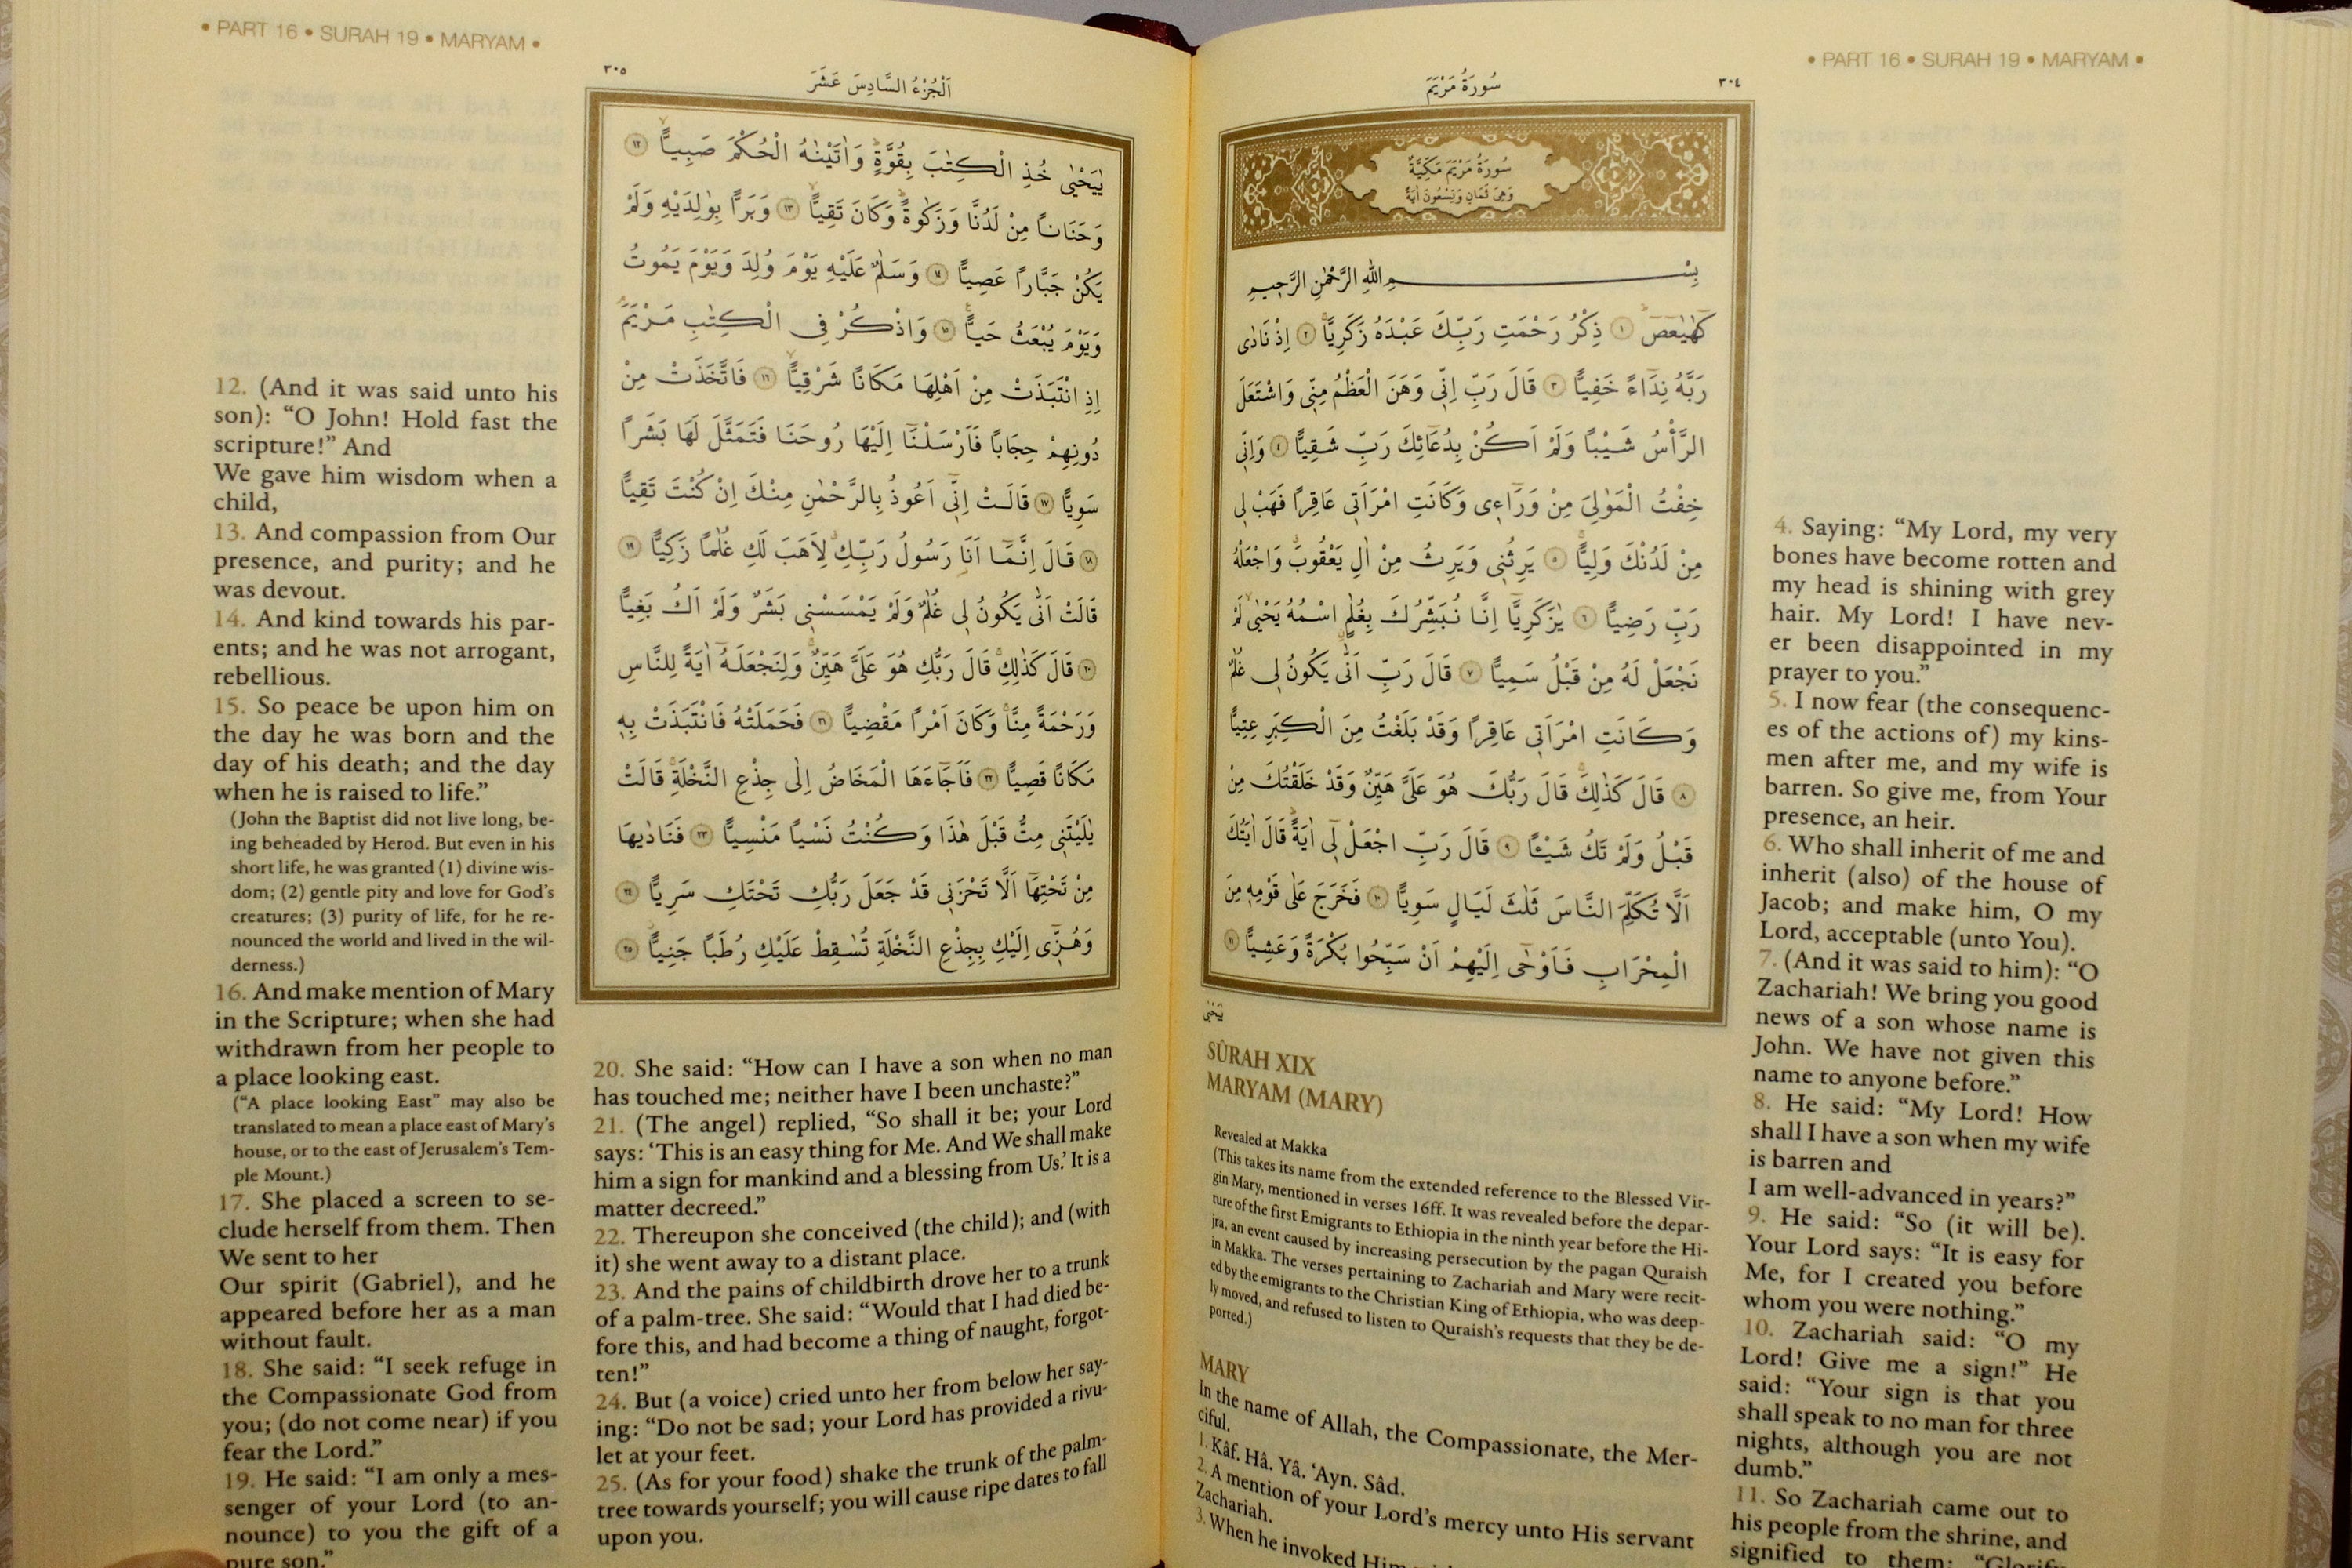 • PART 16 • SURAH 19 • MARYAM •
سُورَةُ مَرْيَمَ
٣٠٤
سُورَةُ مَرْيَمَ مَكِّيَّةٌ
وَهِيَ ثَمَانٍ وَتِسْعُونَ اٰيَةً
بِسْمِ اللّٰهِ الرَّحْمٰنِ الرَّحِيمِ
كٓهٰيٰعٓصٓ ١ ذِكْرُ رَحْمَتِ رَبِّكَ عَبْدَهُ زَكَرِيَّاۚ ٢ اِذْ نَادٰى
رَبَّهُ نِدَٓاءً خَفِيًّا ٣ قَالَ رَبِّ اِنّ۪ي وَهَنَ الْعَظْمُ مِنّ۪ي وَاشْتَعَلَ
الرَّأْسُ شَيْبًا وَلَمْ اَكُنْ بِدُعَٓائِكَ رَبِّ شَقِيًّا ٤ وَاِنّ۪ي
خِفْتُ الْمَوٰلِيَ مِنْ وَرَٓاء۪ي وَكَانَتِ امْرَاَت۪ي عَاقِرًا فَهَبْ ل۪ي
مِنْ لَدُنْكَ وَلِيًّاۙ ٥ يَرِثُن۪ي وَيَرِثُ مِنْ اٰلِ يَعْقُوبَۗ وَاجْعَلْهُ
رَبِّ رَضِيًّا ٦ يٰزَكَرِيَّٓا اِنَّا نُبَشِّرُكَ بِغُلٰمٍۨ اسْمُهُ يَحْيٰىۙ لَمْ
نَجْعَلْ لَهُ مِنْ قَبْلُ سَمِيًّا ٧ قَالَ رَبِّ اَنّٰى يَكُونُ ل۪ي غُلٰمٌ
وَكَانَتِ امْرَاَت۪ي عَاقِرًا وَقَدْ بَلَغْتُ مِنَ الْكِبَرِ عِتِيًّا
٨ قَالَ كَذٰلِكَۚ قَالَ رَبُّكَ هُوَ عَلَيَّ هَيِّنٌ وَقَدْ خَلَقْتُكَ مِنْ
قَبْلُ وَلَمْ تَكُ شَيْـًٔا ٩ قَالَ رَبِّ اجْعَلْ ل۪ٓي اٰيَةًۜ قَالَ اٰيَتُكَ
اَلَّا تُكَلِّمَ النَّاسَ ثَلٰثَ لَيَالٍ سَوِيًّا ١٠ فَخَرَجَ عَلٰى قَوْمِه۪ مِنَ
الْمِحْرَابِ فَاَوْحٰٓى اِلَيْهِمْ اَنْ سَبِّحُوا بُكْرَةً وَعَشِيًّا ١١
يَحْيٰى
SÛRAH XIX
MARYAM (MARY)
Revealed at Makka
(This takes its name from the extended reference to the Blessed Vir-
gin Mary, mentioned in verses 16ff. It was revealed before the depar-
ture of the first Emigrants to Ethiopia in the ninth year before the Hi-
jra, an event caused by increasing persecution by the pagan Quraish
in Makka. The verses pertaining to Zachariah and Mary were recit-
ed by the emigrants to the Christian King of Ethiopia, who was deep-
ly moved, and refused to listen to Quraish's requests that they be de-
ported.)
MARY
In the name of Allah, the Compassionate, the Mer-
ciful.
1. Kâf. Hâ. Yâ. ‘Ayn. Sâd.
2. A mention of your Lord's mercy unto His servant
Zachariah.
3. When he invoked Him
4. Saying: “My Lord, my very
bones have become rotten and
my head is shining with grey
hair. My Lord! I have nev-
er been disappointed in my
prayer to you.”
5. I now fear (the consequenc-
es of the actions of) my kins-
men after me, and my wife is
barren. So give me, from Your
presence, an heir.
6. Who shall inherit of me and
inherit (also) of the house of
Jacob; and make him, O my
Lord, acceptable (unto You).
7. (And it was said to him): “O
Zachariah! We bring you good
news of a son whose name is
John. We have not given this
name to anyone before.”
8. He said: “My Lord! How
shall I have a son when my wife
is barren and
I am well-advanced in years?”
9. He said: “So (it will be).
Your Lord says: “It is easy for
Me, for I created you before
whom you were nothing.”
10. Zachariah said: “O my
Lord! Give me a sign!” He
said: “Your sign is that you
shall speak to no man for three
nights, although you are not
dumb.”
11. So Zachariah came out to
his people from the shrine, and
signified to them: “Glorify
• PART 16 • SURAH 19 • MARYAM •
اَلْجُزْءُ السَّادِسَ عَشَرَ
٣٠٥
يٰيَحْيٰى خُذِ الْكِتٰبَ بِقُوَّةٍۜ وَاٰتَيْنٰهُ الْحُكْمَ صَبِيًّاۙ ١٢
وَحَنَانًا مِنْ لَدُنَّا وَزَكٰوةًۜ وَكَانَ تَقِيًّاۙ ١٣ وَبَرًّا بِوٰلِدَيْهِ وَلَمْ
يَكُنْ جَبَّارًا عَصِيًّا ١٤ وَسَلٰمٌ عَلَيْهِ يَوْمَ وُلِدَ وَيَوْمَ يَمُوتُ
وَيَوْمَ يُبْعَثُ حَيًّاۚ ١٥ وَاذْكُرْ فِي الْكِتٰبِ مَرْيَمَۢ
اِذِ انْتَبَذَتْ مِنْ اَهْلِهَا مَكَانًا شَرْقِيًّاۙ ١٦ فَاتَّخَذَتْ مِنْ
دُونِهِمْ حِجَابًا فَاَرْسَلْنَٓا اِلَيْهَا رُوحَنَا فَتَمَثَّلَ لَهَا بَشَرًا
سَوِيًّا ١٧ قَالَتْ اِنّ۪ٓي اَعُوذُ بِالرَّحْمٰنِ مِنْكَ اِنْ كُنْتَ تَقِيًّا
١٨ قَالَ اِنَّمَٓا اَنَا رَسُولُ رَبِّكِۗ لِاَهَبَ لَكِ غُلٰمًا زَكِيًّا ١٩
قَالَتْ اَنّٰى يَكُونُ ل۪ي غُلٰمٌ وَلَمْ يَمْسَسْن۪ي بَشَرٌ وَلَمْ اَكُ بَغِيًّا
٢٠ قَالَ كَذٰلِكِۚ قَالَ رَبُّكِ هُوَ عَلَيَّ هَيِّنٌۚ وَلِنَجْعَلَهُٓ اٰيَةً لِلنَّاسِ
وَرَحْمَةً مِنَّاۚ وَكَانَ اَمْرًا مَقْضِيًّا ٢١ فَحَمَلَتْهُ فَانْتَبَذَتْ بِه۪
مَكَانًا قَصِيًّا ٢٢ فَاَجَٓاءَهَا الْمَخَاضُ اِلٰى جِذْعِ النَّخْلَةِۚ قَالَتْ
يٰلَيْتَن۪ي مِتُّ قَبْلَ هٰذَا وَكُنْتُ نَسْيًا مَنْسِيًّا ٢٣ فَنَادٰيهَا
مِنْ تَحْتِهَٓا اَلَّا تَحْزَن۪ي قَدْ جَعَلَ رَبُّكِ تَحْتَكِ سَرِيًّا ٢٤
وَهُزّ۪ٓي اِلَيْكِ بِجِذْعِ النَّخْلَةِ تُسٰقِطْ عَلَيْكِ رُطَبًا جَنِيًّاۘ ٢٥
12. (And it was said unto his
son): “O John! Hold fast the
scripture!” And
We gave him wisdom when a
child,
13. And compassion from Our
presence, and purity; and he
was devout.
14. And kind towards his par-
ents; and he was not arrogant,
rebellious.
15. So peace be upon him on
the day he was born and the
day of his death; and the day
when he is raised to life.”
(John the Baptist did not live long, be-
ing beheaded by Herod. But even in his
short life, he was granted (1) divine wis-
dom; (2) gentle pity and love for God's
creatures; (3) purity of life, for he re-
nounced the world and lived in the wil-
derness.)
16. And make mention of Mary
in the Scripture; when she had
withdrawn from her people to
a place looking east.
(“A place looking East” may also be
translated to mean a place east of Mary's
house, or to the east of Jerusalem's Tem-
ple Mount.)
17. She placed a screen to se-
clude herself from them. Then
We sent to her
Our spirit (Gabriel), and he
appeared before her as a man
without fault.
18. She said: “I seek refuge in
the Compassionate God from
you; (do not come near) if you
fear the Lord.”
19. He said: “I am only a mes-
senger of your Lord (to an-
nounce) to you the gift of a
pure son.”
20. She said: “How can I have a son when no man
has touched me; neither have I been unchaste?”
21. (The angel) replied, “So shall it be; your Lord
says: ‘This is an easy thing for Me. And We shall make
him a sign for mankind and a blessing from Us.’ It is a
matter decreed.”
22. Thereupon she conceived (the child); and (with
it) she went away to a distant place.
23. And the pains of childbirth drove her to a trunk
of a palm-tree. She said: “Would that I had died be-
fore this, and had become a thing of naught, forgot-
ten!”
24. But (a voice) cried unto her from below her say-
ing: “Do not be sad; your Lord has provided a rivu-
let at your feet.
25. (As for your food) shake the trunk of the palm-
tree towards yourself; you will cause ripe dates to fall
upon you.